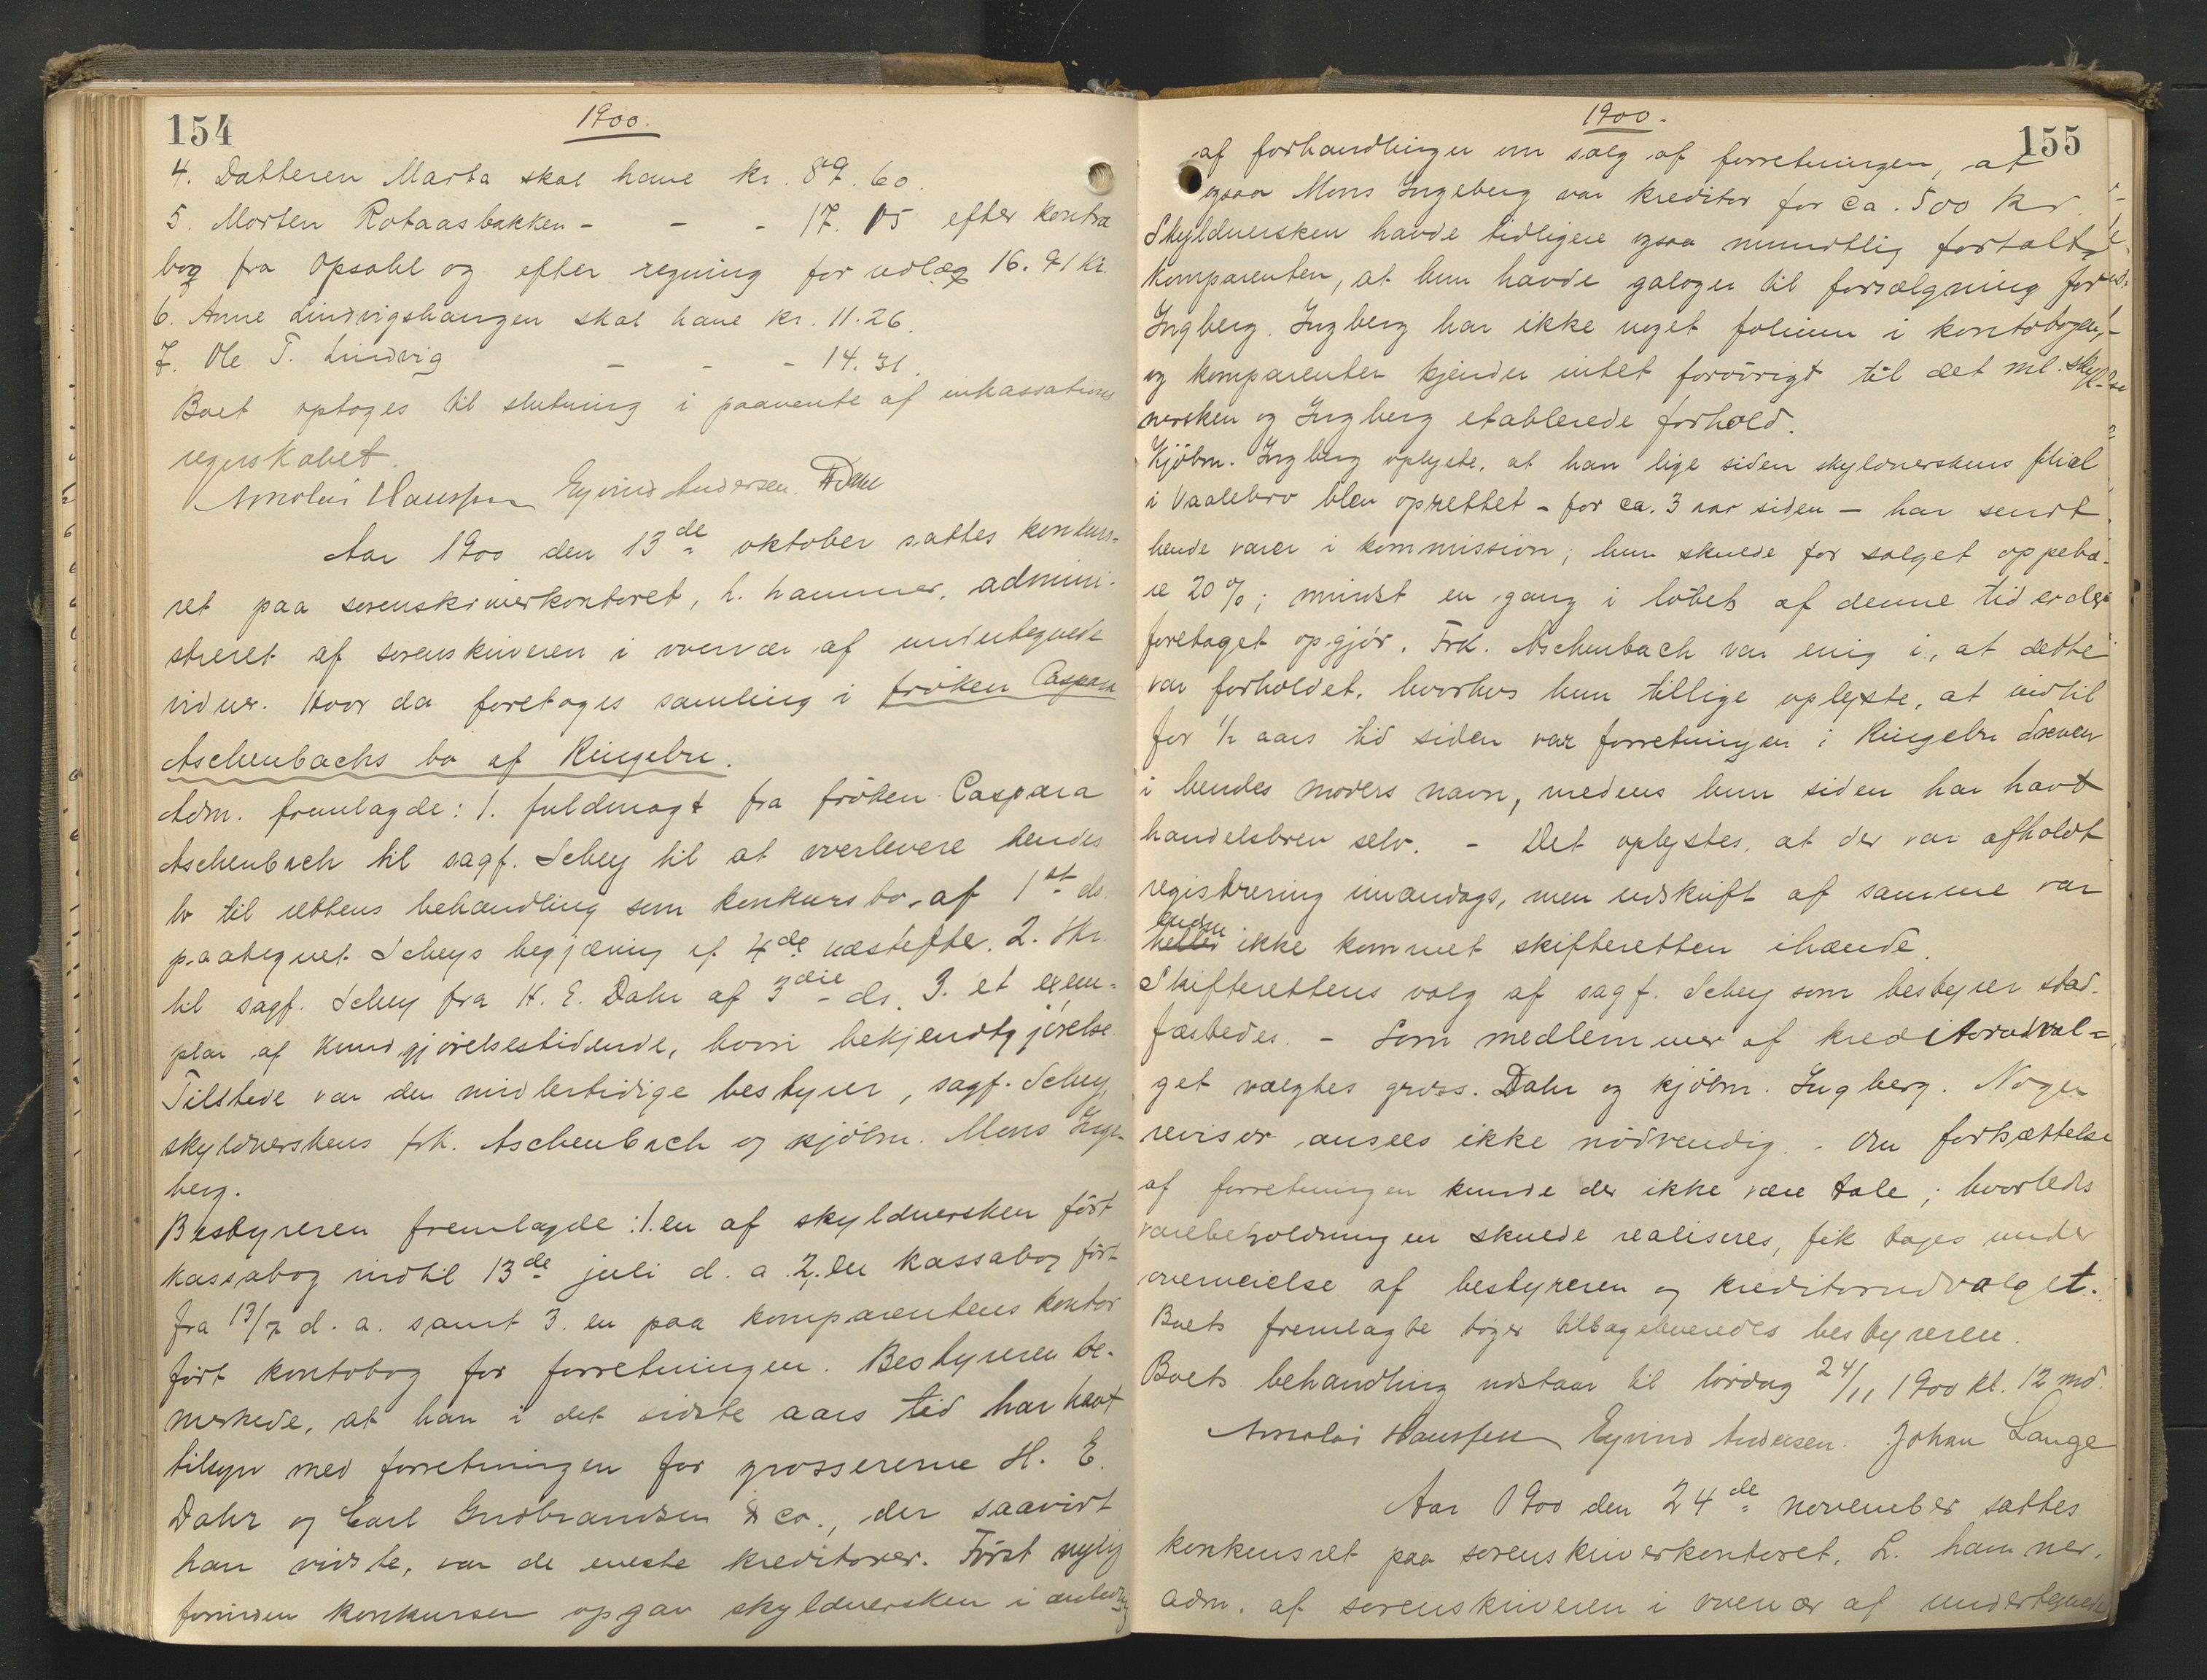 154
1900.
4. Datteren Marta skal have kr. 89.60.
5. Morten Rotaasbakken - - - 17.05 efter kontra
bog fra Opsahl og efter regning for udlæg 16.91 kr.
6. Anne Lindvigshaugen skal have kr. 11.26.
7. Ole T. Lindvig - - - 14.31.
Boet optoges til slutning i paavente af inkassations
regnskabet.
Arnoldus Hanssen Eyvind Andersen.
Aar 1900 den 13de oktober sattes konkurs-
ret paa sorenskriverkontoret, L. hammer, admini-
streret af sorenskriveren i overvær af undertegnede
vidner. Hvor da foretoges samling i frøken Caspara
Aschenbachs bo af Ringebu.
Adm. fremlagde: 1. fuldmagt fra frøken Caspara
Aschenbach til sagf. Schey til at overlevere hendes
bo til rettens behandling som konkursbo, af 1st ds.
paategnet Scheys begjæring af 4de næstefter. 2. Skr.
til sagf. Schey fra H. E. Dahr af 3die ds. 3. et exem-
plar af Kundgjørelsestidende, hvori bekjendtgjørelse.
Tilstede var den midlertidige bestyrer, sagf. Schey,
skyldnerskens frk. Aschenbach og kjøbm. Mons Inge-
berg.
Bestyreren fremlagde: 1. en af skyldnersken ført
kassabog indtil 13de juli d. a. 2. en kassabog ført
fra 13/7 d. a. samt 3. en paa komparentens kontor
ført kontobog for forretningen. Bestyreren be-
merkede, at han i det sidste aars tid har havt
tilsyn med forretningen for grossererne H. E.
Dahr og Carl Gudbrandsen & co., der saavidt
han vidste, var de eneste kreditorer. Først nylig
forinden konkursen opgav skyldnersken i anledning
1900.
155
af forhandlinger om salg af forretningen, at
ogsaa Mons Ingeberg var kreditor for ca. 500 kr.
Skyldnersken havde tidligere ogsaa mundtlig fortalt
komparenten, at hun havde galoger til forsælgning for
Ingberg. Ingberg har ikke noget folium i kontobogen,
og komparenten kjender intet forøvrigt til det ml. skyld-
nersken og Ingberg etablerede forhold.
Kjøbm. Ingberg oplyste, at han lige siden skyldnerskens filial
i Vaalebro blev oprettet - for ca. 3 aar siden - har sendt
hende varer i kommission; hun skulde for salget oppebæ-
re 20%; mindst en gang i løbet af denne tid er der
foretaget opgjør. Frk. Aschenbach var enig i, at dette
var forholdet, hvorhos hun tillige oplyste, at indtil
for 1/2 aars tid siden var forretningen i Ringebu dreven
i hendes moders navn, medens hun siden har havt
handelsbrev selv. - Det oplystes, at der var afholdt
registrering imandags, men udskrift af samme var
endnu
heller ikke kommet skifteretten ihænde.
Skifterettens valg af sagf. Schey som bestyrer stad-
fæstedes. - Som medlemmer af kreditorudval-
get valgtes gross. Dahr og kjøbm. Ingberg. Nogen
revisor ansees ikke nødvendig. - Om fortsættelse
af forretningen kunde der ikke være tale; hvorledes
varebeholdningen skulde realiseres, fik tages under
overveielse af bestyreren og kreditorudvalget.
Boets fremlagte bøger tilbageleveredes bestyreren.
Boets behandling udstaar til lørdag 24/11 1900 kl. 12 md.
Arnoldus Hanssen Eyvind Andersen. Johan Lange
Aar 1900 den 24de november sattes
konkursret paa sorenskriverkontoret, L. hammer,
adm. af sorenskriveren i overvær af undertegnede